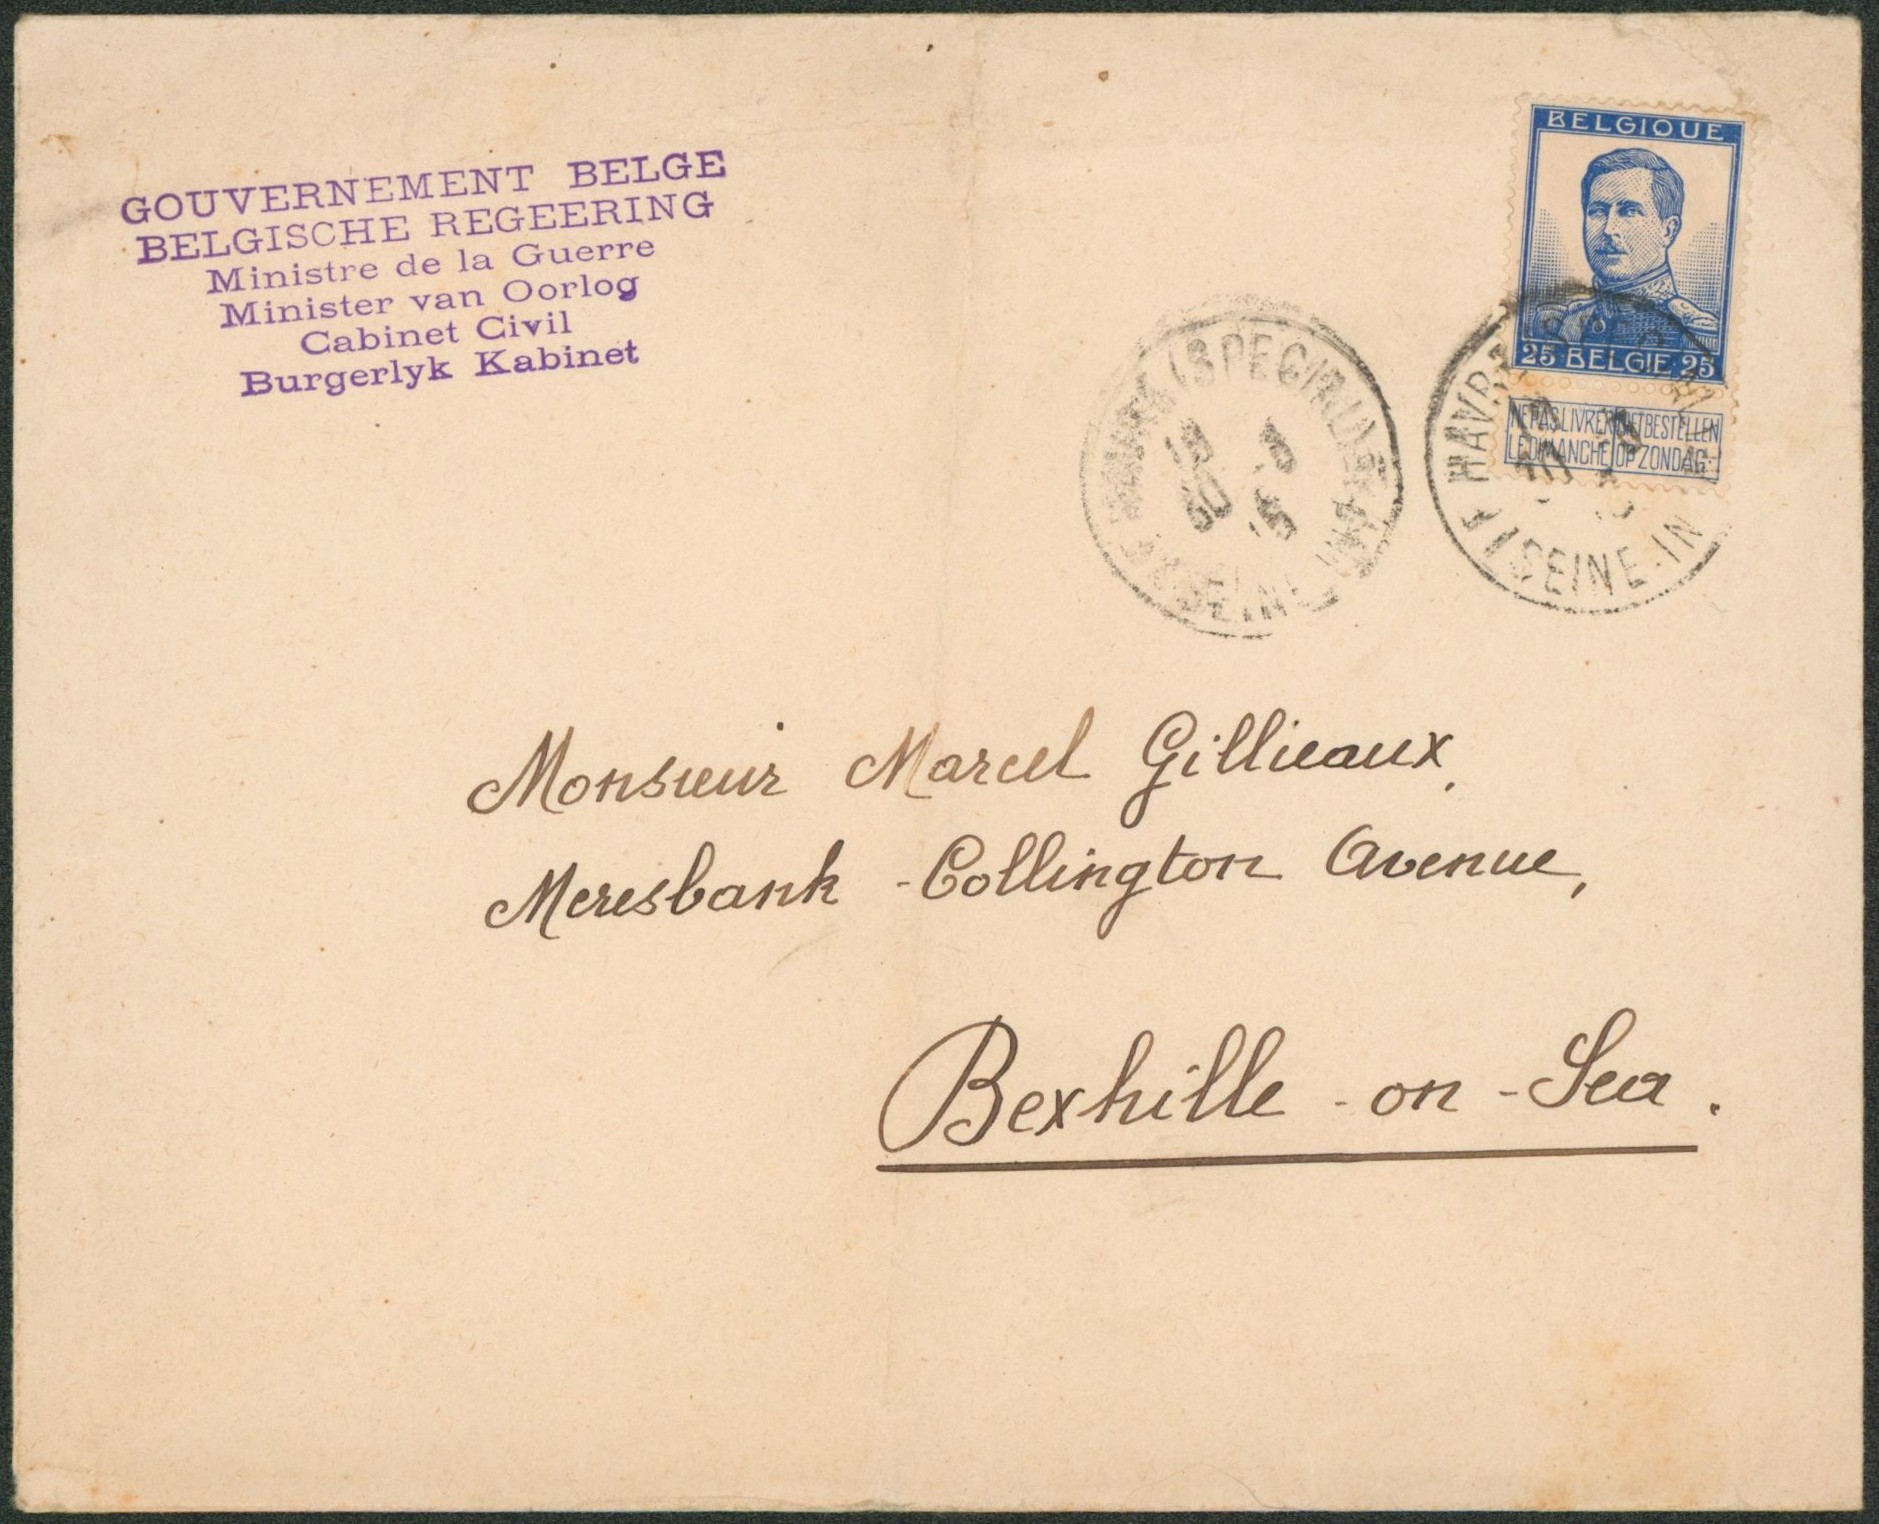 GOUVERNEMENT BELGE
BELGISCHE REGEERING
Ministre de la Guerre
Minister van Oorlog
Cabinet Civil
Burgerlyk Kabinet
BELGIQUE
25 BELGIE 25
NE PAS LIVRER NIET BESTELLEN
LE DIMANCHE OP ZONDAG
HAVRE (SPECIAL)
SEINE-IN
HAVRE (SPECIAL)
SEINE-IN
Monsieur Marcel Gillieaux,
Meresbank - Collington Avenue,
Bexhille - on - Sea.